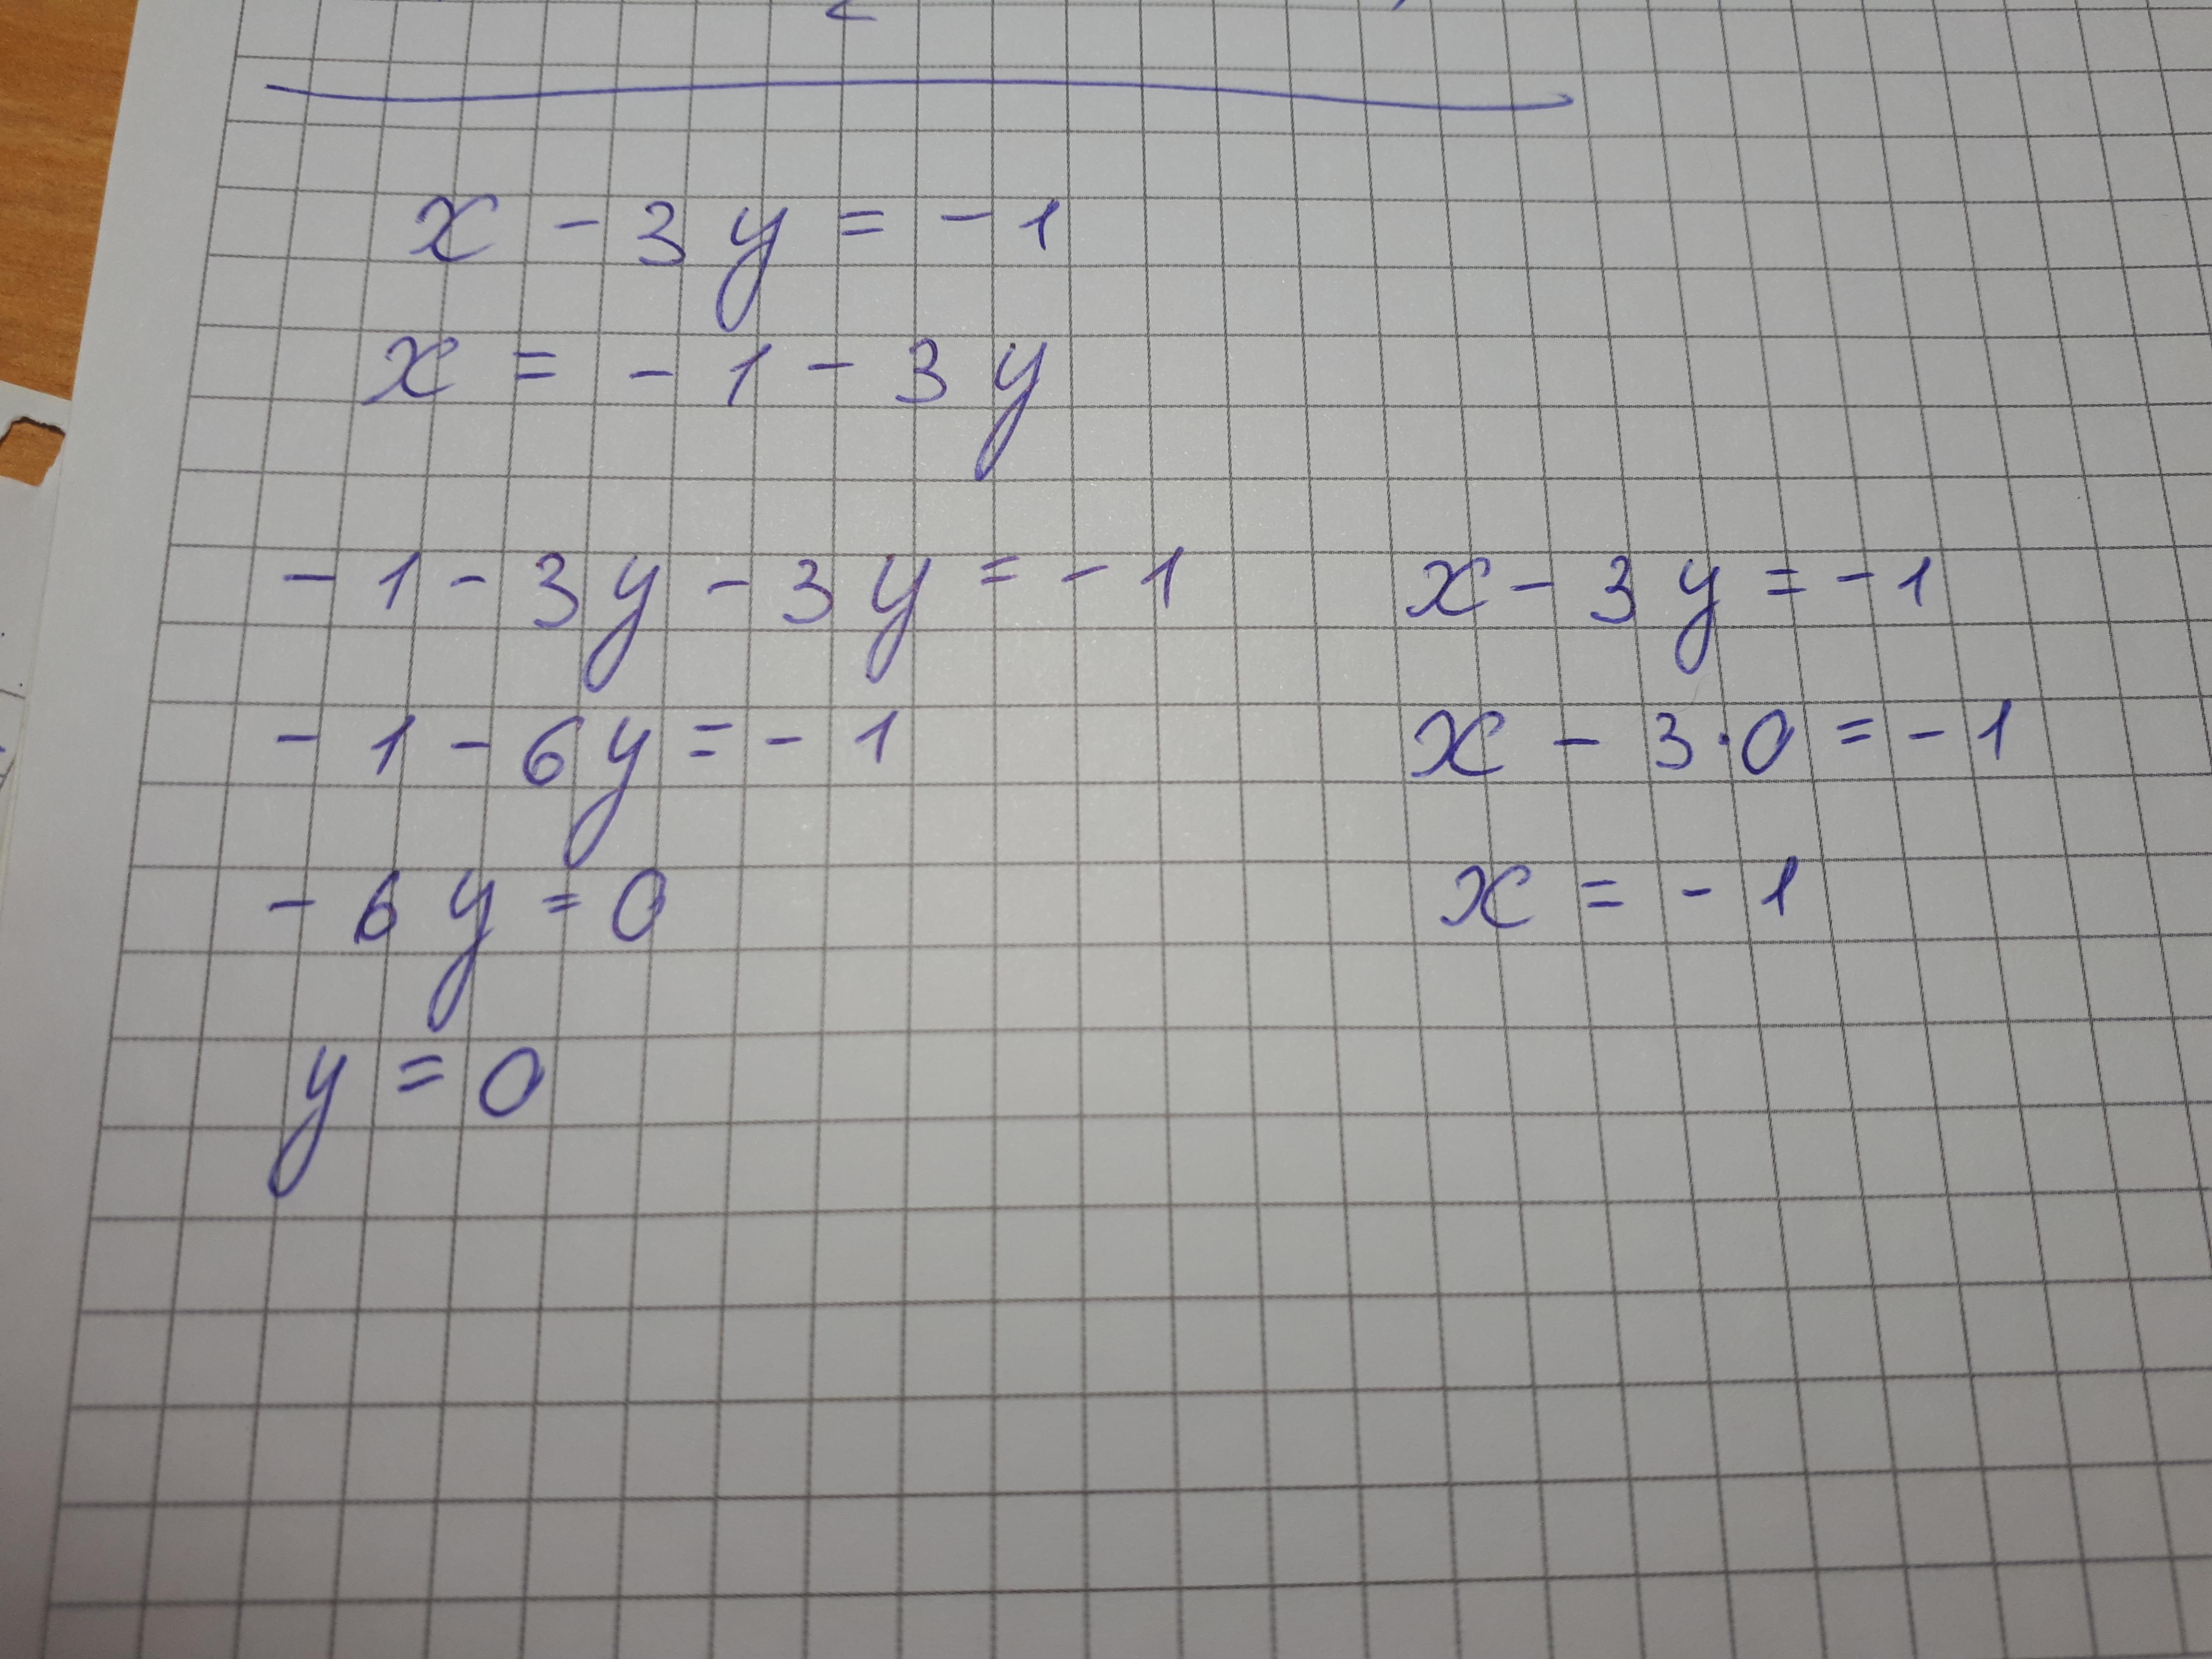 x - 3y = -1
x = -1 - 3y
-1 - 3y - 3y = -1
-1 - 6y = -1
-6y = 0
y = 0
x - 3y = -1
x - 3·0 = -1
x = -1